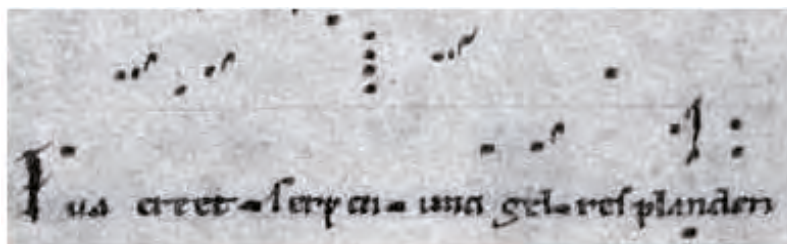 Eua creet-serpen-una gel-resplanden